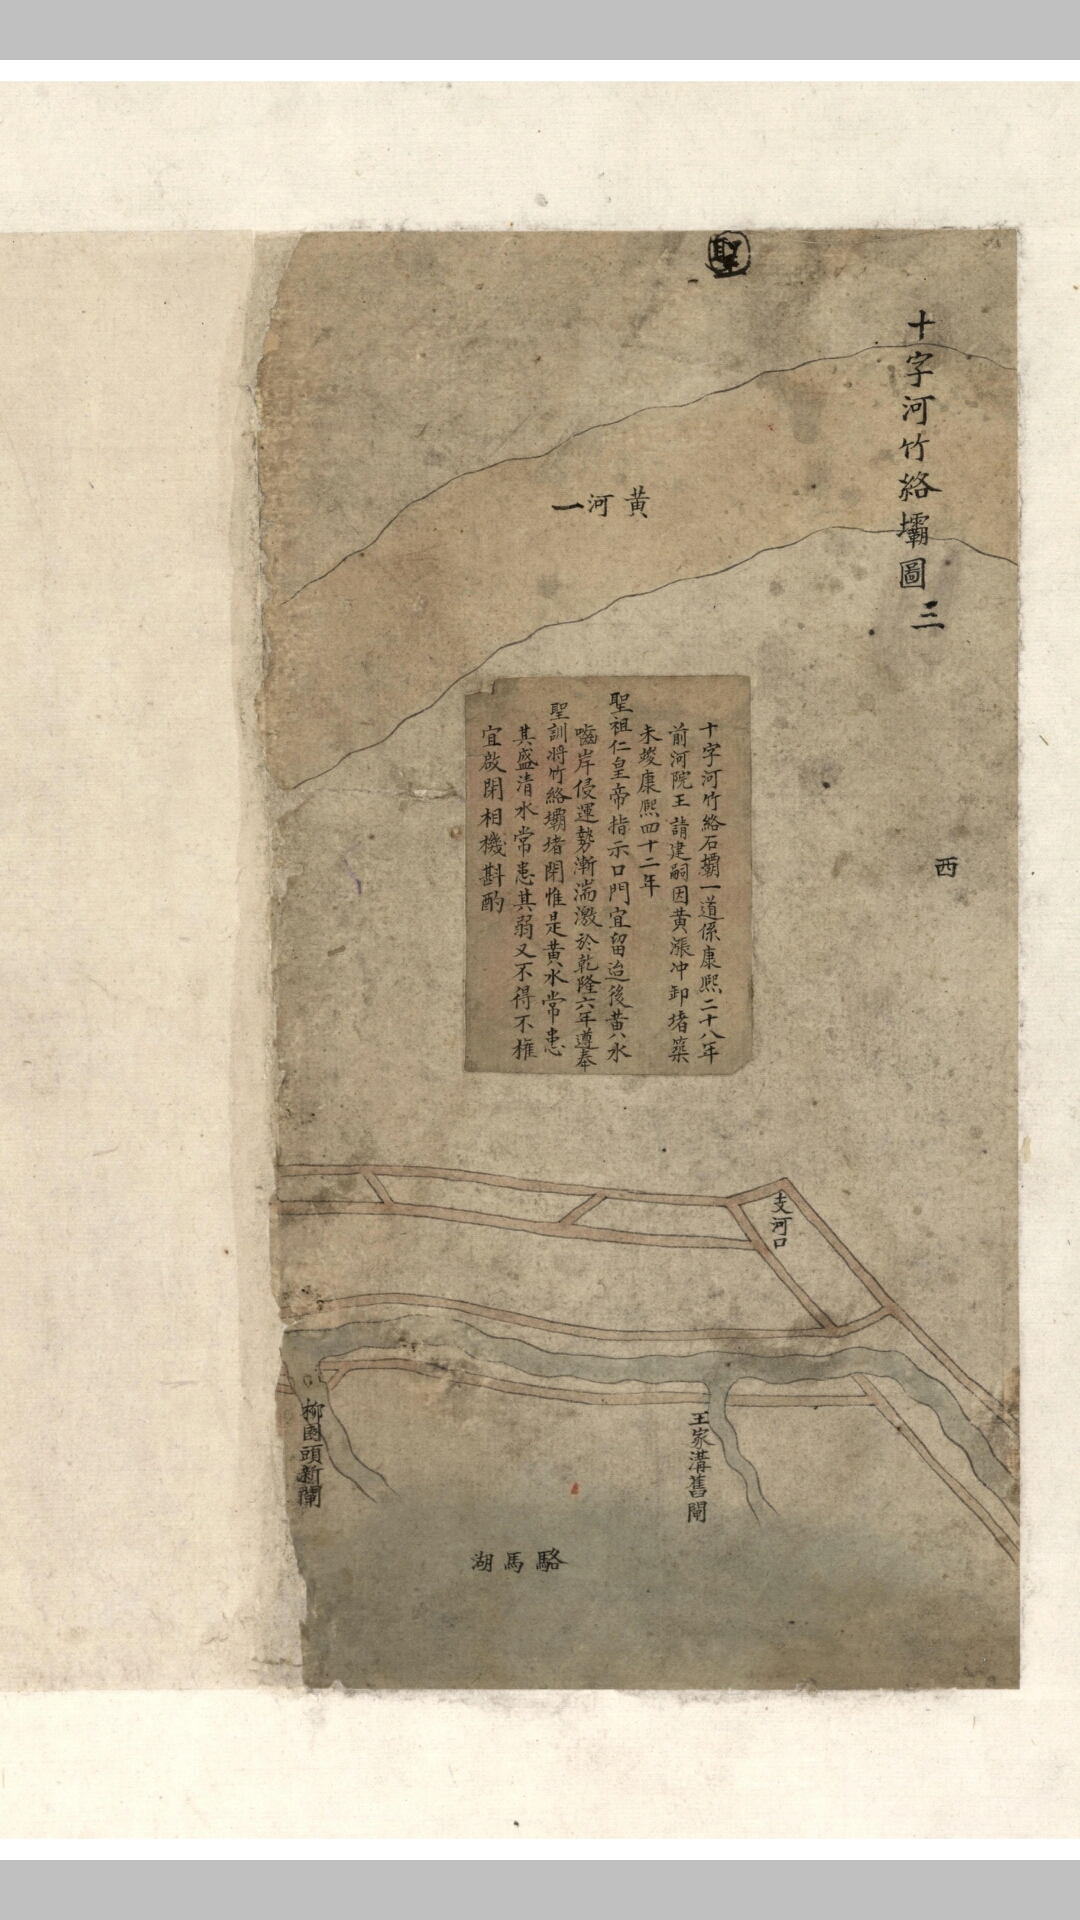 聖
十字河竹絡壩圖三
黃河一
西
十字河竹絡石壩一道係康熙二十八年
前河院王請建嗣因黃漲冲卸堵築
未竣康熙四十二年
聖祖仁皇帝指示口門宜留迨後黃水
嚙岸侵運勢漸湍激於乾隆六年遵奉
聖訓將竹絡壩堵閉惟是黃水常患
其盛清水常患其弱又不得不權
宜啟閉相機斟酌
支河口
王家溝舊閘
柳園頭新閘
駱馬湖